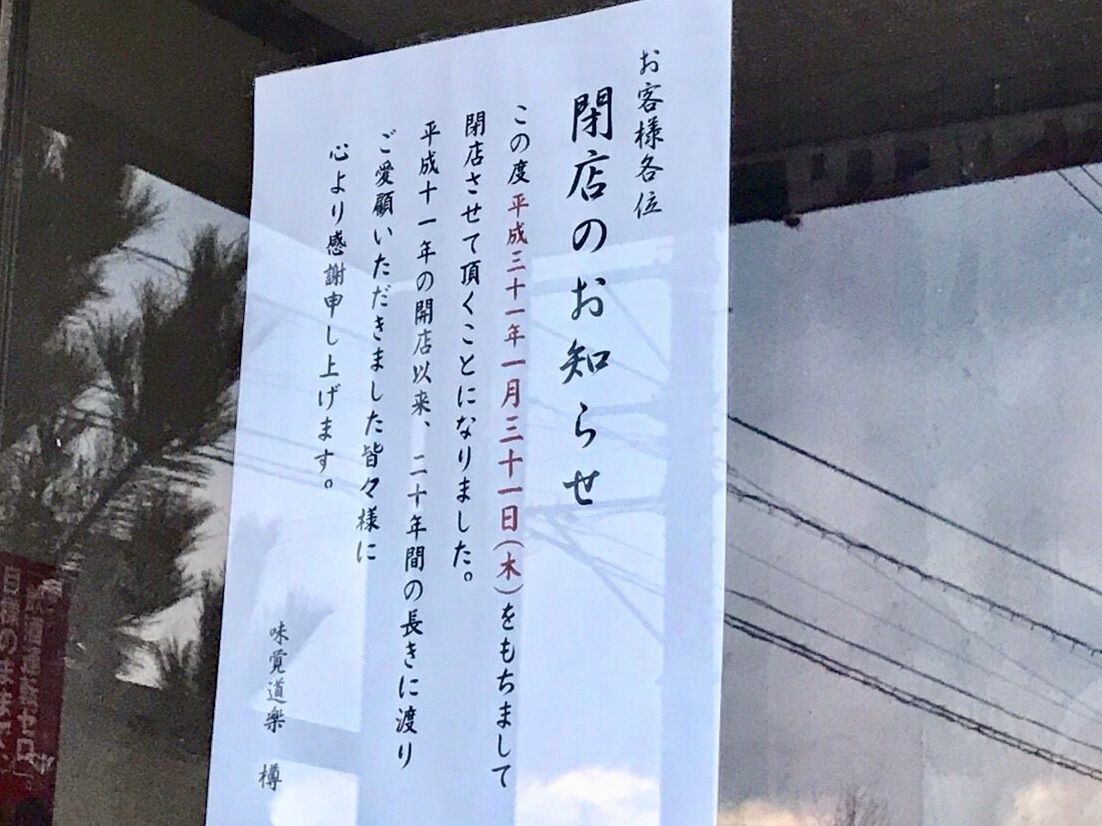 お客様各位
閉店のお知らせ
この度平成三十一年一月三十一日(木)をもちまして
閉店させて頂くことになりました。
平成十一年の開店以来、二十年間の長きに渡り
ご愛顧いただきました皆々様に
心より感謝申し上げます。
味覚道楽 樽